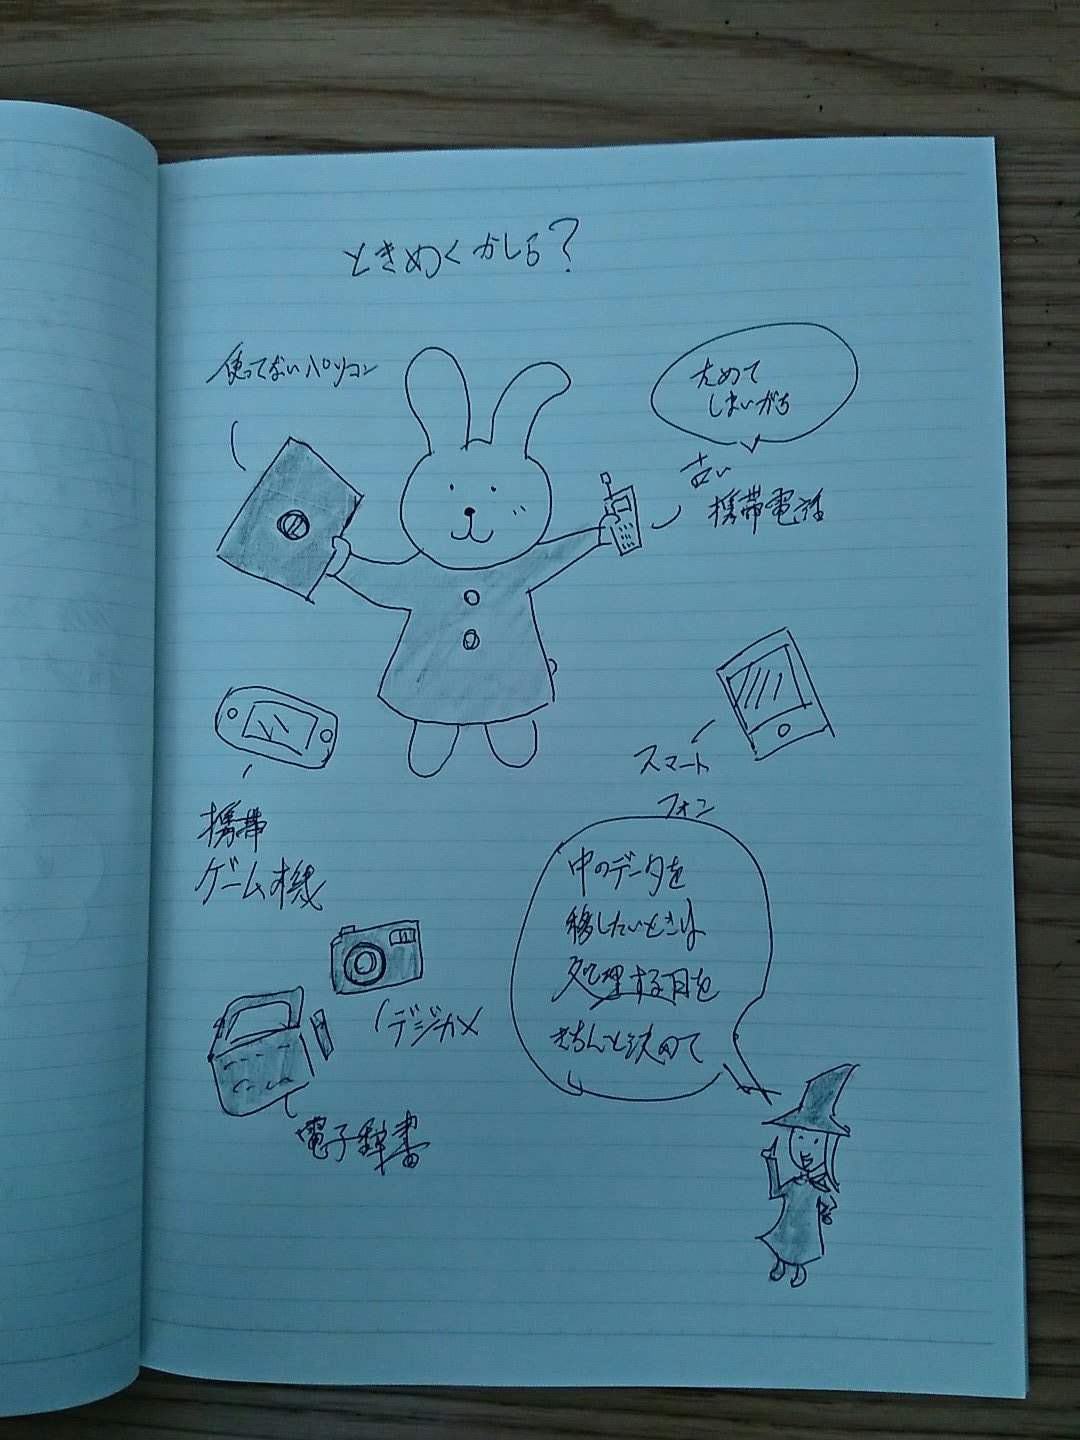 ときめくかしら?
使ってないパソコン
ためて
しまいがち
古い
携帯電話
スマート
フォン
携帯
ゲーム機
中のデータを
移したいときは
処理する日を
きちんと決めて
デジカメ
電子辞書